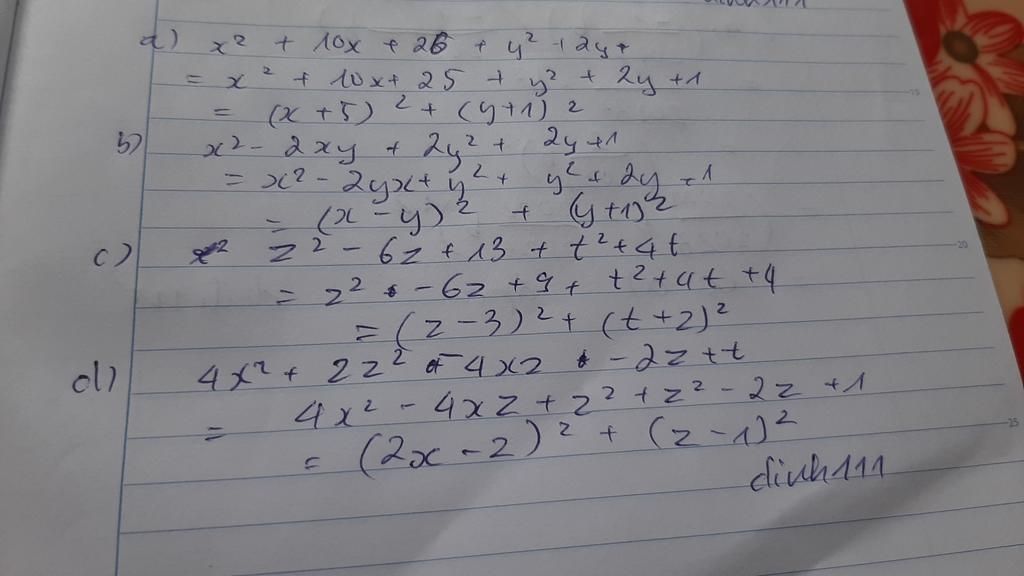 a) x² + 10x + 26 + y² + 2y +
= x² + 10x + 25 + y² + 2y + 1
= (x + 5)² + (y + 1)²
b) x² - 2xy + 2y² + 2y + 1
= x² - 2yx + y² + y² + 2y + 1
= (x - y)² + (y + 1)²
c) z² - 6z + 13 + t² + 4t
= z² - 6z + 9 + t² + 4t + 4
= (z - 3)² + (t + 2)²
d) 4x² + 2z² - 4xz - 2z + t
= 4x² - 4xz + z² + z² - 2z + 1
= (2x - z)² + (z - 1)²
dinh111